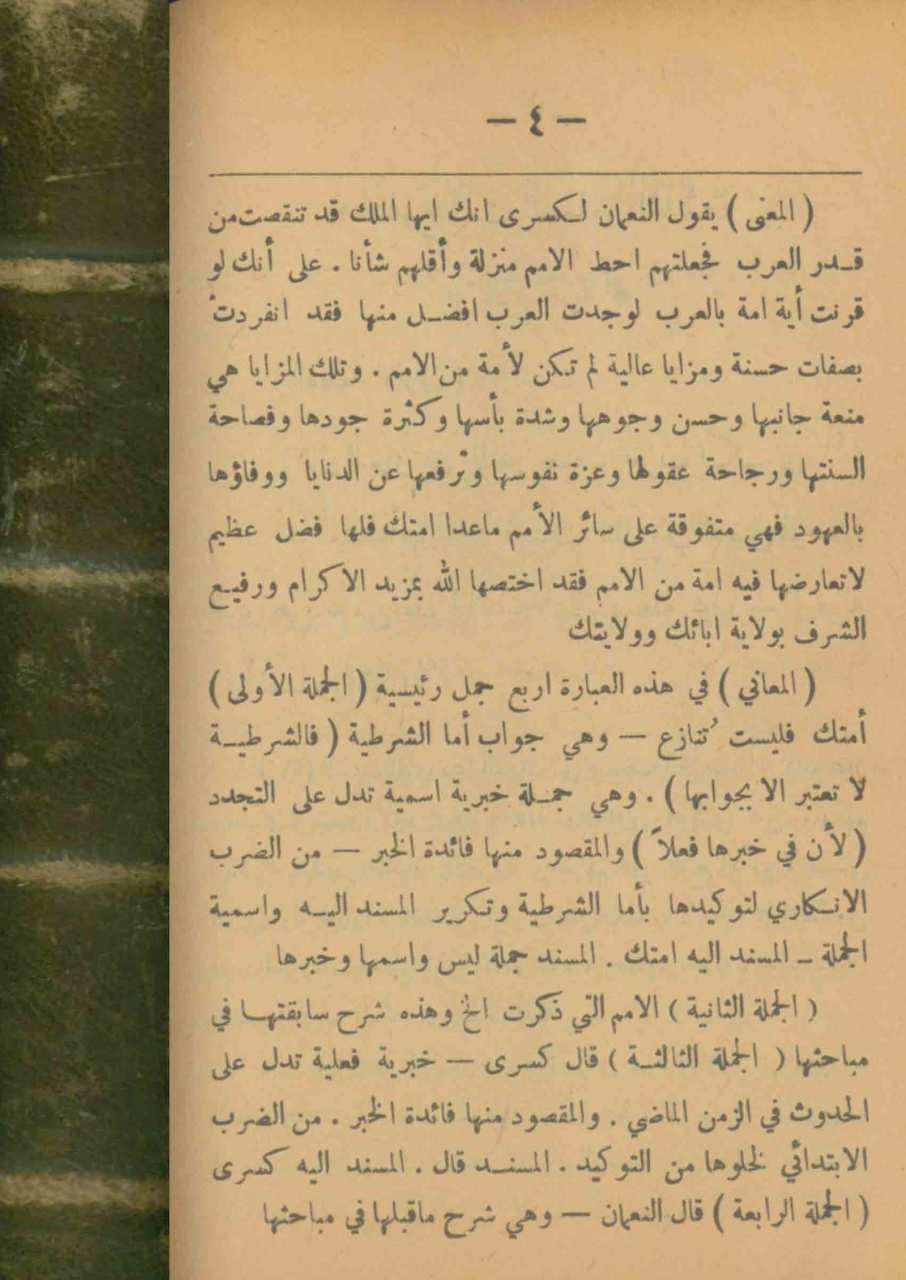 — ٤ —
( المعنى ) يقول النعمان لكسرى انك ايها الملك قد تنقصت من
قدر العرب فجعلتهم احط الامم منزلة وأقلهم شأنا . على أنك لو
قرنت أية امة بالعرب لوجدت العرب افضل منها فقد انفردت
بصفات حسنة ومزايا عالية لم تكن لأمة من الامم . وتلك المزايا هي
منعة جانبها وحسن وجوهها وشدة بأسها وكثرة جودها وفصاحة
السنتها ورجاحة عقولها وعزة نفوسها وترفعها عن الدنايا ووفاؤها
بالعهود فهي متفوقة على سائر الأمم ماعدا امتك فلها فضل عظيم
لاتعارضها فيه امة من الامم فقد اختصها الله بمزيد الاكرام ورفيع
الشرف بولاية ابائك وولايتك
( المعاني ) في هذه العبارة اربع جمل رئيسية ( الجملة الأولى )
أمتك فليست تُنازع — وهي جواب أما الشرطية ( فالشرطية
لا تعتبر الا بجوابها ) . وهي جملة خبرية اسمية تدل على التجدد
( لأن في خبرها فعلاً ) والمقصود منها فائدة الخبر — من الضرب
الانكاري لتوكيدها بأما الشرطية وتكرير المسند اليه واسمية
الجملة – المسند اليه امتك . المسند جملة ليس واسمها وخبرها
( الجملة الثانية ) الامم التي ذكرت الخ وهذه شرح سابقتها في
مباحثها ( الجملة الثالثة ) قال كسرى — خبرية فعلية تدل على
الحدوث في الزمن الماضي . والمقصود منها فائدة الخبر . من الضرب
الابتدائي لخلوها من التوكيد . المسند قال . المسند اليه كسرى
( الجملة الرابعة ) قال النعمان — وهي شرح ماقبلها في مباحثها